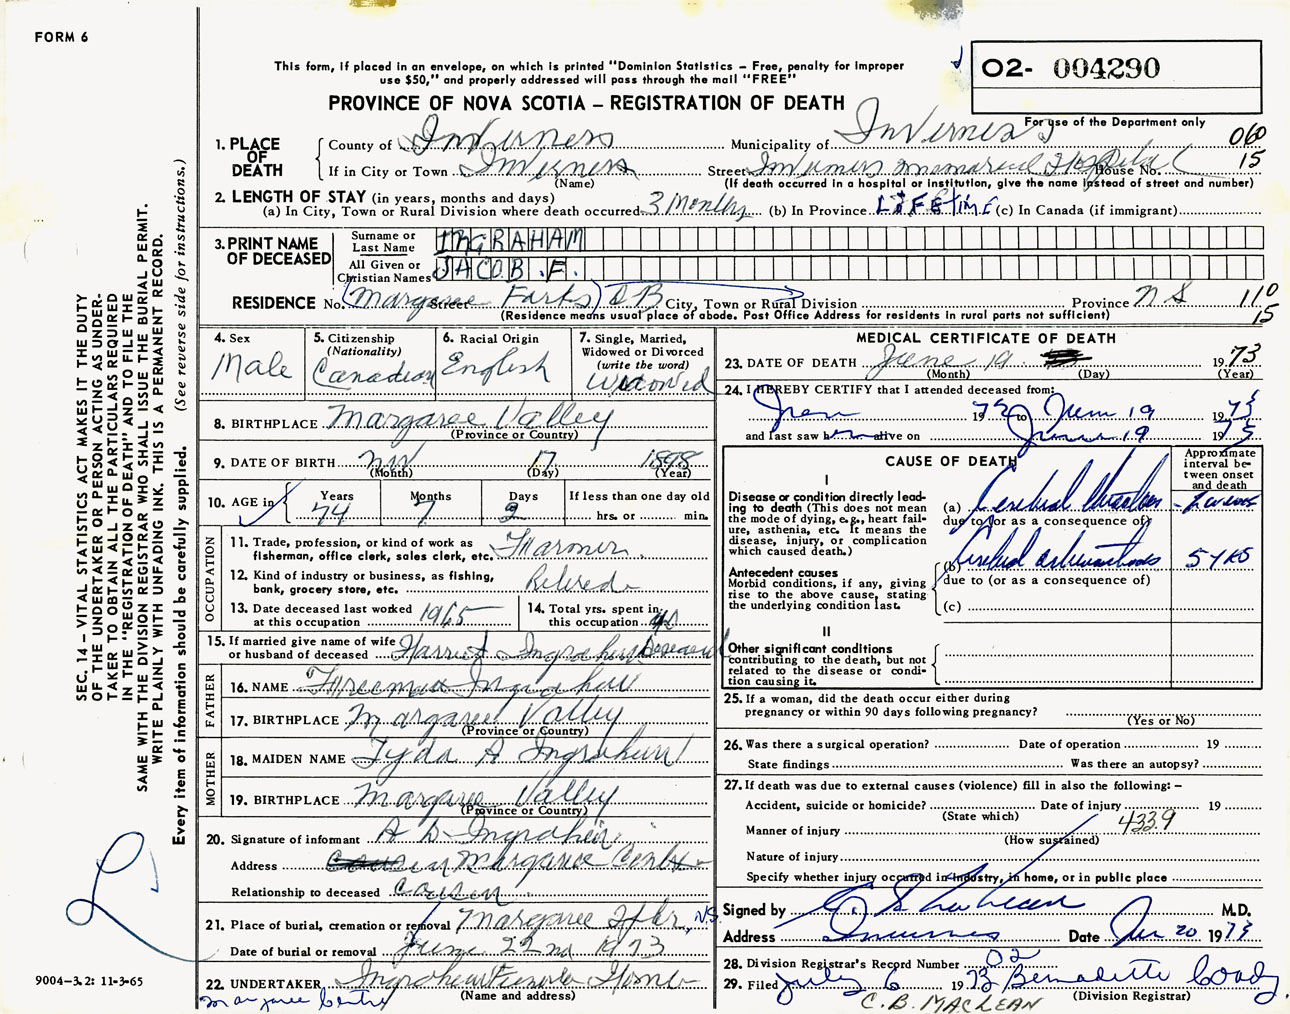 FORM 6
This form, if placed in an envelope, on which is printed "Dominion Statistics – Free, penalty for improper
use $50," and properly addressed will pass through the mail "FREE"
O2- 004290
PROVINCE OF NOVA SCOTIA – REGISTRATION OF DEATH
For use of the Department only
1. PLACE OF DEATH
County of Inverness Municipality of Inverness 060
If in City or Town Inverness Street Inverness Memorial Hospital House No. 15
(Name) (If death occurred in a hospital or institution, give the name instead of street and number)
2. LENGTH OF STAY (in years, months and days)
(a) In City, Town or Rural Division where death occurred 3 Months (b) In Province LIFETIME (c) In Canada (if immigrant)
3. PRINT NAME OF DECEASED
Surname or Last Name INGRAHAM
All Given or Christian Names JACOB .F.
RESIDENCE No. (Margaree Forks) Street City, Town or Rural Division Province N S 110
(Residence means usual place of abode. Post Office Address for residents in rural parts not sufficient) 15
4. Sex Male
5. Citizenship (Nationality) Canadian
6. Racial Origin English
7. Single, Married, Widowed or Divorced (write the word) Widowed
8. BIRTHPLACE Margaree Valley
(Province or Country)
9. DATE OF BIRTH Nov 17 1898
(Month) (Day) (Year)
10. AGE in Years 74 Months 7 Days 2 If less than one day old hrs. or min.
OCCUPATION
11. Trade, profession, or kind of work as fisherman, office clerk, sales clerk, etc. Farmer
12. Kind of industry or business, as fishing, bank, grocery store, etc. Retired
13. Date deceased last worked at this occupation 1965
14. Total yrs. spent in this occupation 40
15. If married give name of wife or husband of deceased Harriet Ingraham Deceased
FATHER
16. NAME Freeman Ingraham
17. BIRTHPLACE Margaree Valley
(Province or Country)
MOTHER
18. MAIDEN NAME A Ingraham
19. BIRTHPLACE Margaree Valley
(Province or Country)
20. Signature of informant A D Ingraham
Address Margaree Centre
Relationship to deceased Cousin
21. Place of burial, cremation or removal Margaree N.S.
Date of burial or removal June 22nd 1973
22. UNDERTAKER Ingraham Funeral Home
Margaree Centre (Name and address)
MEDICAL CERTIFICATE OF DEATH
23. DATE OF DEATH June 19 1973
(Month) (Day) (Year)
24. I HEREBY CERTIFY that I attended deceased from:
1972 to June 19 1973
and last saw him alive on June 19 1973
CAUSE OF DEATH
Approximate interval between onset and death
I
Disease or condition directly leading to death (This does not mean the mode of dying, e.g., heart failure, asthenia, etc. It means the disease, injury, or complication which caused death.)
(a) Cerebral Thrombosis
due to (or as a consequence of)
Antecedent causes
Morbid conditions, if any, giving rise to the above cause, stating the underlying condition last.
(b) Cerebral 5 YRS
due to (or as a consequence of)
(c)
II
Other significant conditions
contributing to the death, but not related to the disease or condition causing it.
25. If a woman, did the death occur either during pregnancy or within 90 days following pregnancy?
(Yes or No)
26. Was there a surgical operation? Date of operation 19
State findings Was there an autopsy?
27. If death was due to external causes (violence) fill in also the following: –
Accident, suicide or homicide? Date of injury 19
(State which)
Manner of injury 433.9
(How sustained)
Nature of injury
Specify whether injury occurred in industry, in home, or in public place
Signed by M.D.
Address Inverness Date Jun 20 1973
28. Division Registrar's Record Number 02
29. Filed July 6 1973 Bernadette Coady
C. B. MACLEAN (Division Registrar)
SEC. 14 – VITAL STATISTICS ACT MAKES IT THE DUTY
OF THE UNDERTAKER OR PERSON ACTING AS UNDER-
TAKER TO OBTAIN ALL THE PARTICULARS REQUIRED
IN THE "REGISTRATION OF DEATH" AND TO FILE THE
SAME WITH THE DIVISION REGISTRAR WHO SHALL ISSUE THE BURIAL PERMIT.
WRITE PLAINLY WITH UNFADING INK. THIS IS A PERMANENT RECORD.
Every item of information should be carefully supplied. (See reverse side for instructions.)
9004-3.2: 11-3-65